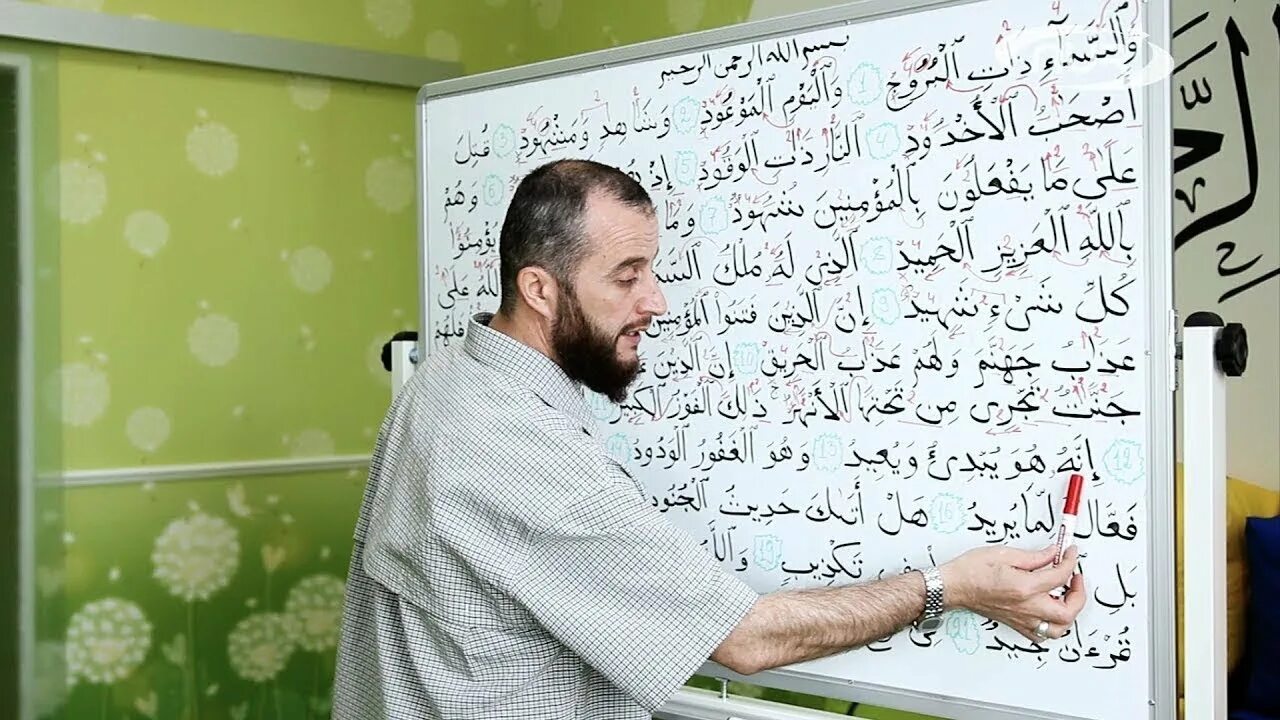 بسم الله الرحمن الرحيم
وَٱلسَّمَآءِ ذَاتِ ٱلْبُرُوجِ 1 وَٱلْيَوْمِ ٱلْمَوْعُودِ 2 وَشَاهِدٍ وَمَشْهُودٍ 3 قُتِلَ
أَصْحَٰبُ ٱلْأُخْدُودِ 4 ٱلنَّارِ ذَاتِ ٱلْوَقُودِ 5 إِذْ 6 وَهُمْ
عَلَىٰ مَا يَفْعَلُونَ بِٱلْمُؤْمِنِينَ شُهُودٌ 7 وَمَا يُؤْمِنُوا
بِٱللَّهِ ٱلْعَزِيزِ ٱلْحَمِيدِ 8 ٱلَّذِى لَهُ مُلْكُ عَلَىٰ
كُلِّ شَىْءٍ شَهِيدٌ 9 إِنَّ ٱلَّذِينَ فَتَنُوا ٱلْمُؤْمِنِينَ فَلَهُمْ
عَذَابُ جَهَنَّمَ وَلَهُمْ عَذَابُ ٱلْحَرِيقِ 10 إِنَّ ٱلَّذِينَ
جَنَّٰتٌ تَجْرِى مِن تَحْتِهَا ٱلْأَنْهَٰرُ ذَٰلِكَ ٱلْفَوْزُ ٱلْكَبِيرُ
12 إِنَّهُ هُوَ يُبْدِئُ وَيُعِيدُ 13 وَهُوَ ٱلْغَفُورُ ٱلْوَدُودُ 14
فَعَّالٌ لِّمَا يُرِيدُ 16 هَلْ أَتَىٰكَ حَدِيثُ ٱلْجُنُودِ
بَلِ فِى تَكْذِيبٍ 19
قُرْءَانٌ مَّجِيدٌ 21 فِى